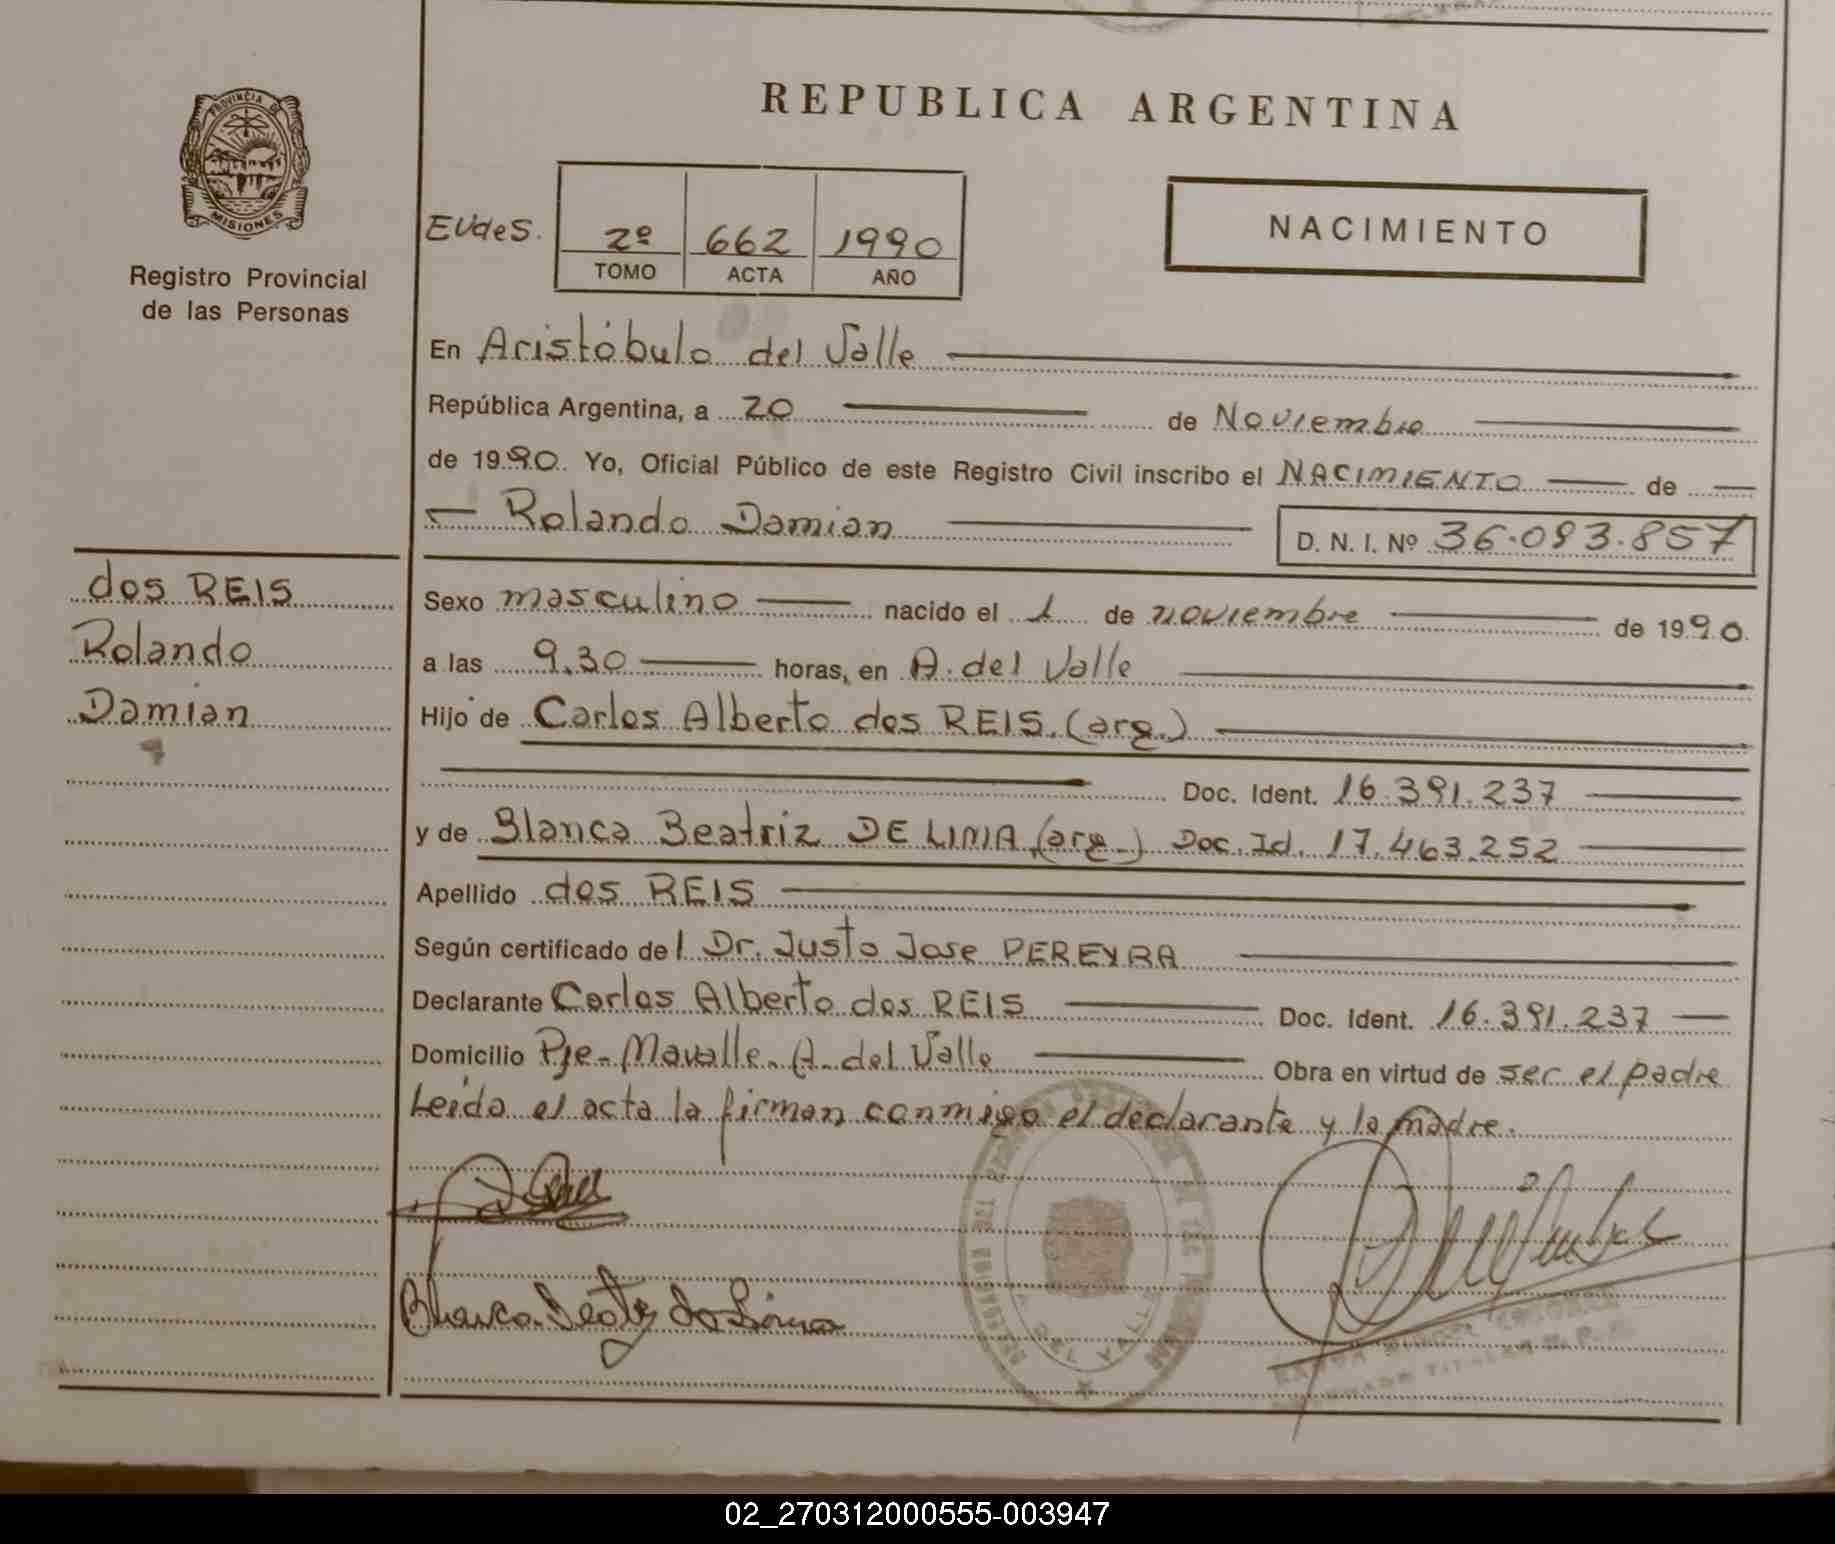 REPUBLICA ARGENTINA
PROVINCIA DE
MISIONES
Registro Provincial
de las Personas
EVdeS.
2º 662 1990
TOMO ACTA AÑO
NACIMIENTO
En Aristóbulo del Valle
República Argentina, a 20 de Noviembre
de 1990. Yo, Oficial Público de este Registro Civil inscribo el NACIMIENTO de
Rolando Damian D. N. I. Nº 36.093.857
dos REIS
Rolando
Damian
Sexo masculino nacido el 1 de noviembre de 1990.
a las 9.30 horas, en A. del Valle
Hijo de Carlos Alberto dos REIS. (arg.)
Doc. Ident. 16.391.237
y de Blanca Beatriz DE LIMA (arg.) Doc. Id. 17.463.252
Apellido dos REIS
Según certificado del Dr. Justo Jose PEREYRA
Declarante Carlos Alberto dos REIS Doc. Ident. 16.391.237
Domicilio Pje. Mavalle. A. del Valle Obra en virtud de ser el padre
Leida el acta la firman conmigo el declarante y la madre.
02_270312000555-003947